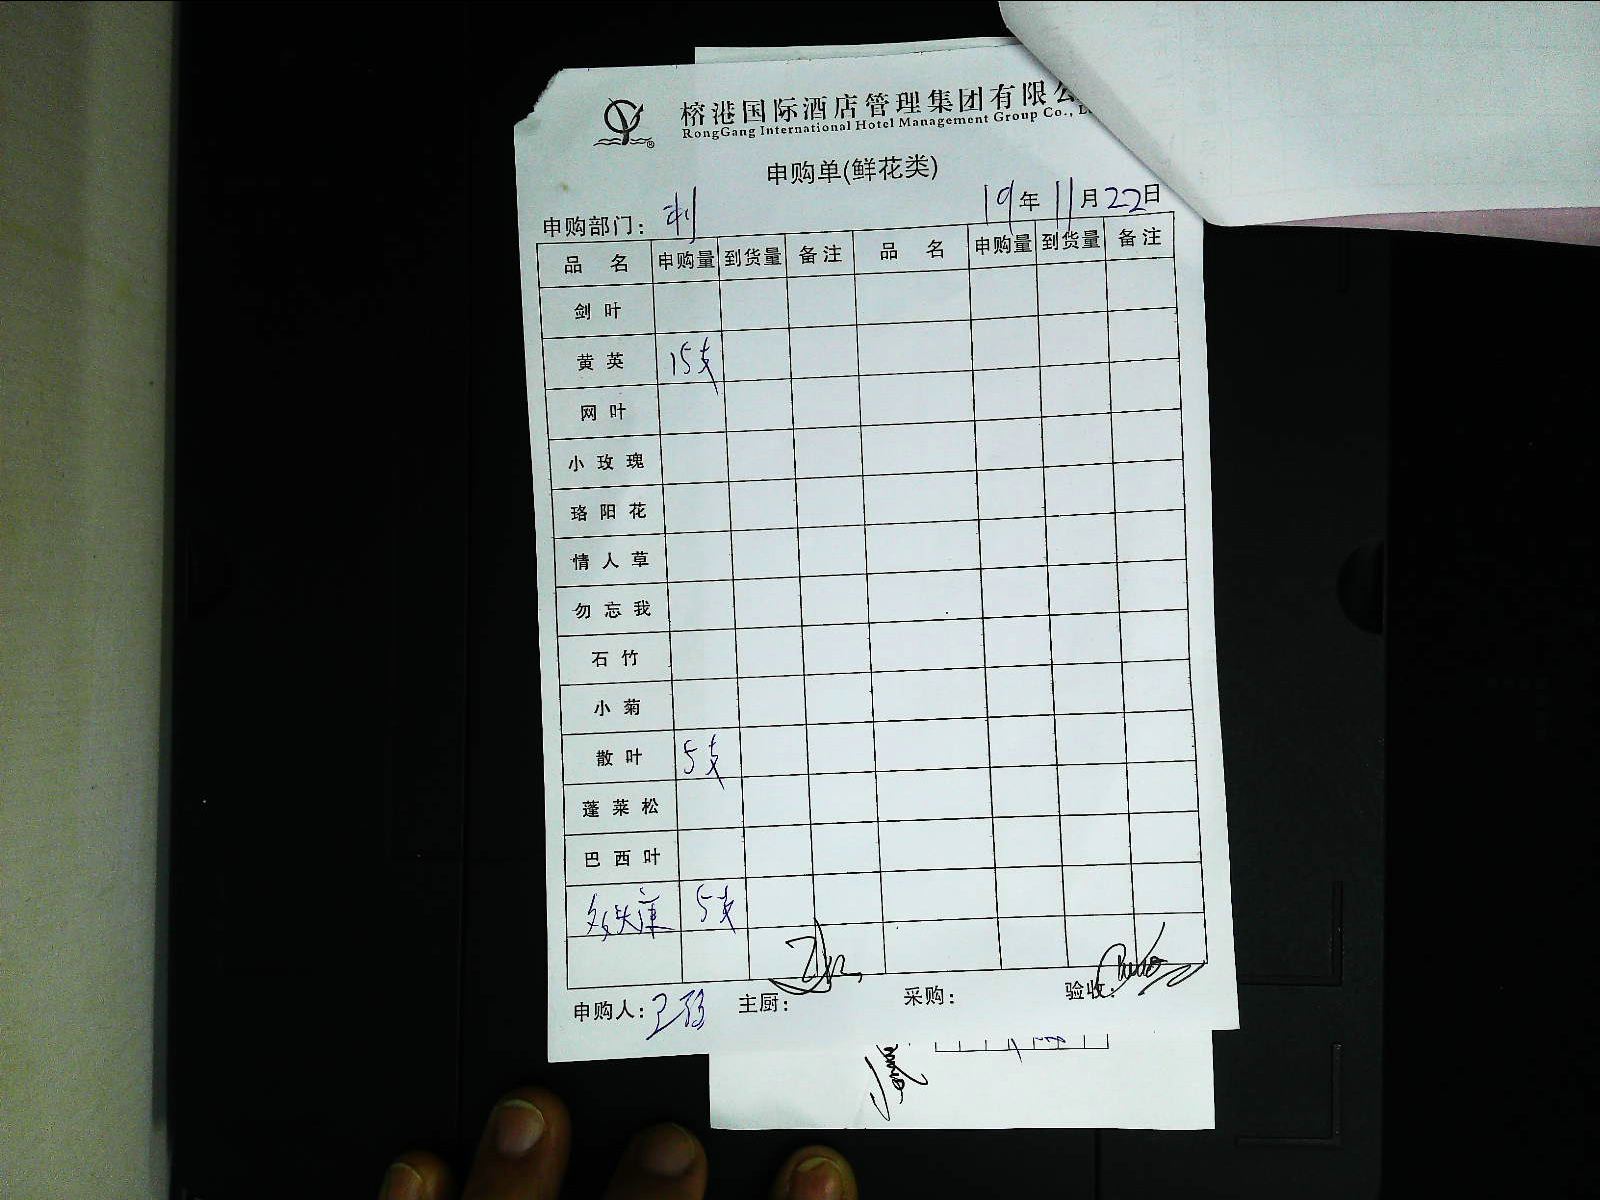 榕港国际酒店管理集团有限公
RongGang International Hotel Management Group Co.,
申购单(鲜花类)
申购部门： 19年11月22日
品 名 申购量 到货量 备注 品 名 申购量 到货量 备注
剑叶
黄英 15支
网叶
小玫瑰
珞阳花
情人草
勿忘我
石竹
小菊
散叶 5支
蓬莱松
巴西叶
5支
申购人： 主厨： 采购： 验收：